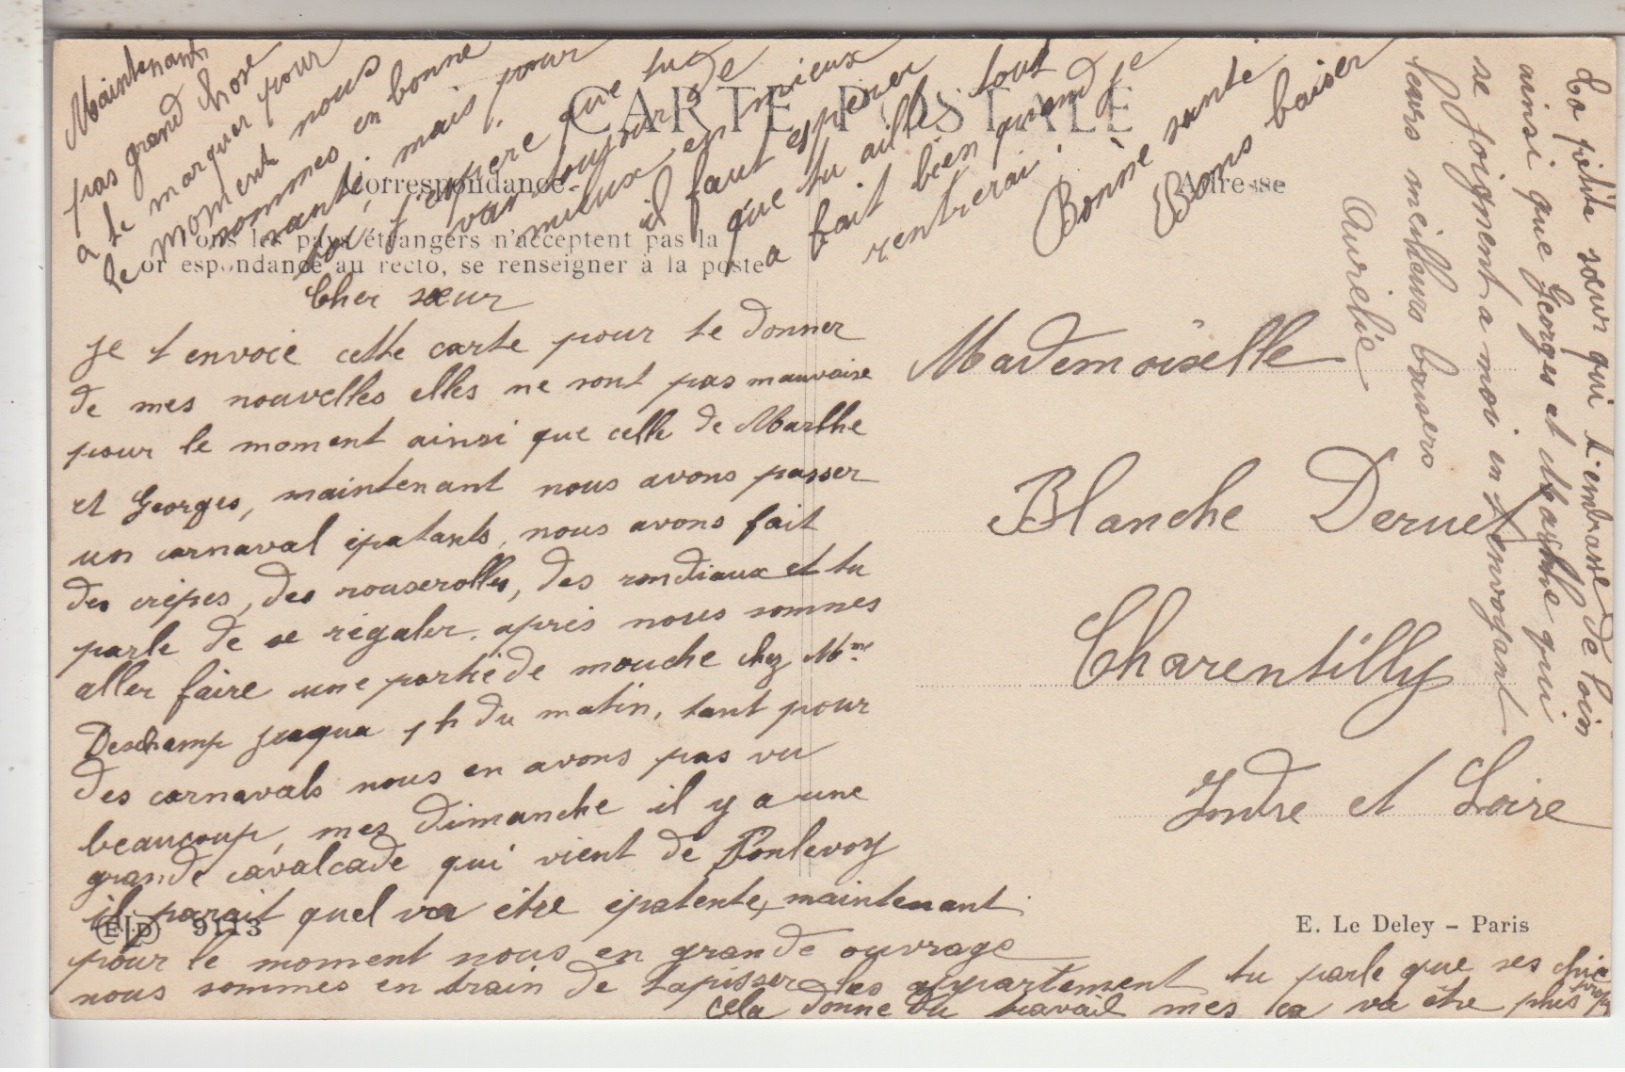 CARTE POSTALE
Correspondance
Adresse
Tous les pays étrangers n'acceptent pas la
correspondance au recto, se renseigner à la poste
Cher sœur
je t envoie cette carte pour te donner
de mes nouvelles elles ne sont pas mauvaise
pour le moment ainsi que celle de Marthe
et Georges, maintenant nous avons passer
un carnaval épatants, nous avons fait
des crêpes, des rouserolles, des rondiaux et tu
parle de se régaler. après nous sommes
aller faire une partie de mouche chez Mme
Deschamp jusqua 1 h du matin, tant pour
des carnavals nous en avons pas vu
beaucoup, mes dimanche il y a une
grande cavalcade qui vient de Pontlevoy
il parait quel va être épatente, maintenant
pour le moment nous en grande ouvrage
nous sommes en train de tapisser les appartement tu parle que ses chic
cela donne du travail mes ça va être plus propre
Maintenant
pas grand chose
a te marquer pour
le moment nous
sommes en bonne
santé, mais pour
toi j'espère que tu
va toujour de
mieux en mieux
il faut espérer
que tu aille tout
a fait bien quand je
rentrerai.
Bonne santé
Bons baiser
Mademoiselle
Blanche Deruet
Charentilly
Indre et Loire
La petite sœur qui t'embrasse de loin
ainsi que Georges et Marthe qui
se joignent a moi en t'envoyant
leurs meilleurs baisers
Aurélie
ELD 9113
E. Le Deley - Paris